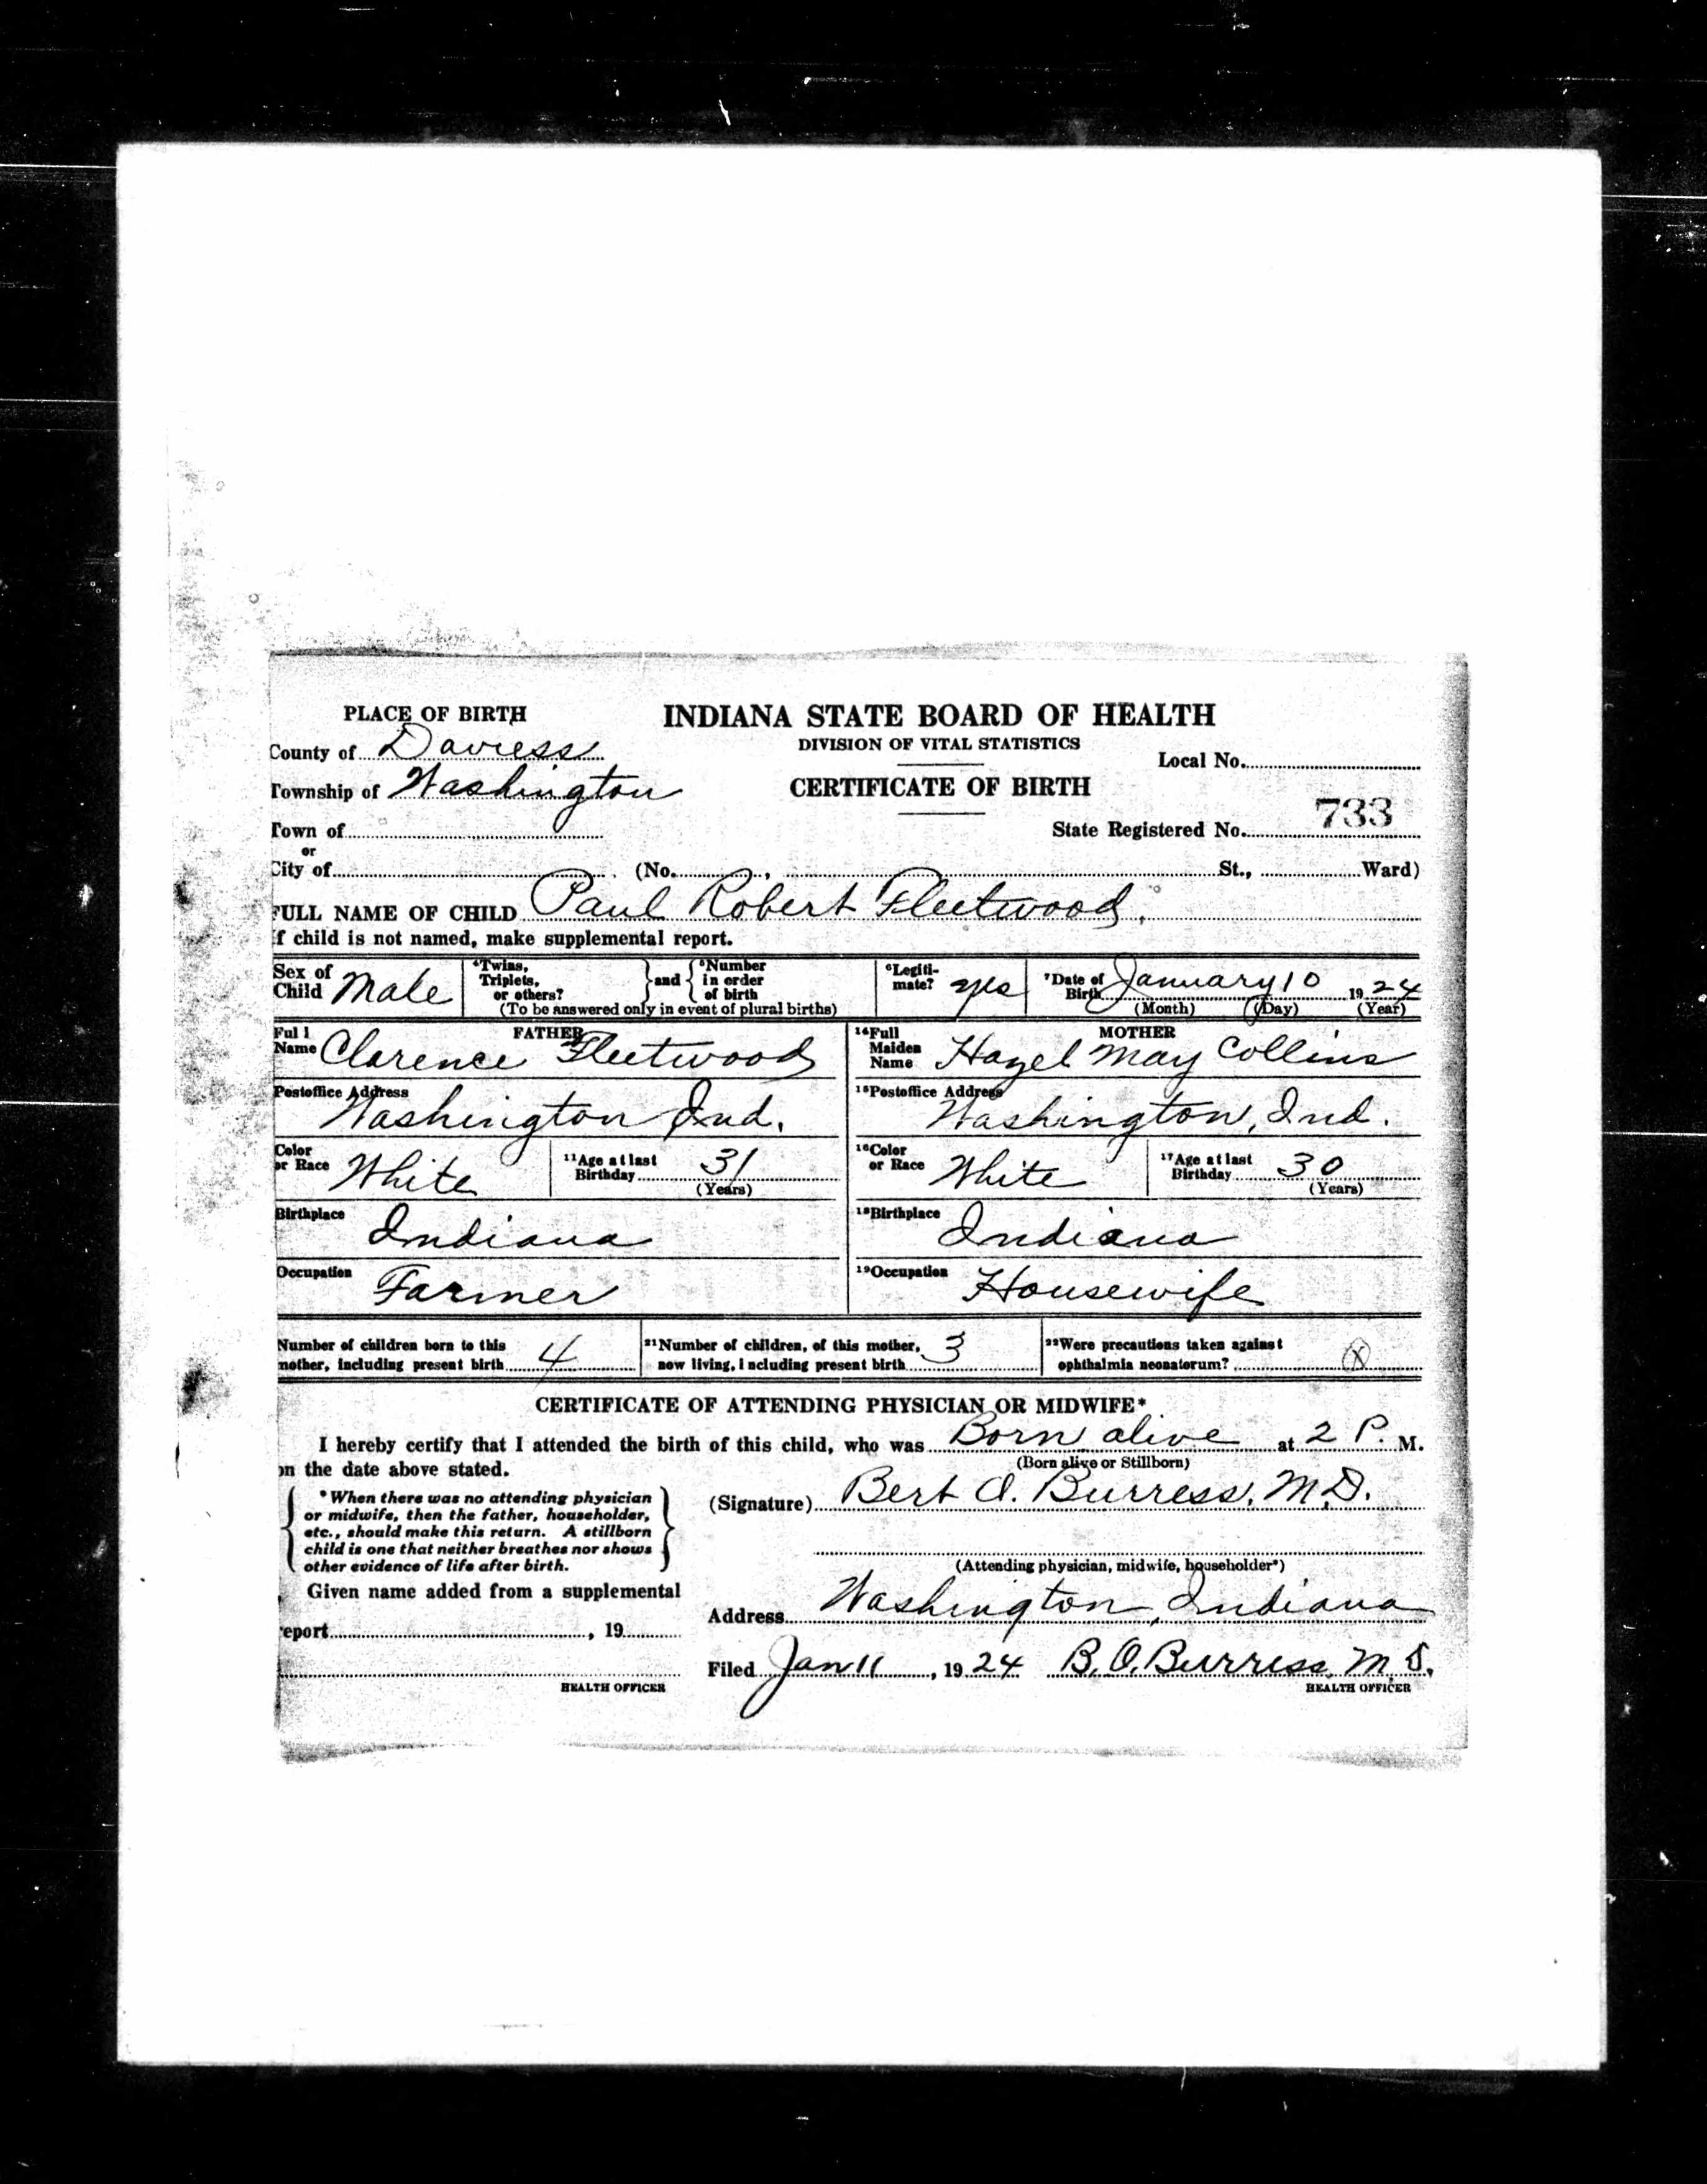 PLACE OF BIRTH
INDIANA STATE BOARD OF HEALTH
DIVISION OF VITAL STATISTICS
County of Daviess
Local No.
Township of Washington
CERTIFICATE OF BIRTH
733
Town of
State Registered No.
or
City of (No. , St., Ward)
FULL NAME OF CHILD Paul Robert Fleetwood.
If child is not named, make supplemental report.
Sex of Child Male
⁴Twins, Triplets, or others? } and { ⁵Number in order of birth
(To be answered only in event of plural births)
⁶Legiti-mate? yes
⁷Date of Birth January 10 1924
(Month) (Day) (Year)
FATHER
Full Name Clarence Fleetwood
MOTHER
¹⁴Full Maiden Name Hazel May Collins
Postoffice Address Washington Ind.
¹⁵Postoffice Address Washington, Ind.
Color or Race White
¹¹Age at last Birthday 31
(Years)
¹⁶Color or Race White
¹⁷Age at last Birthday 30
(Years)
Birthplace Indiana
¹⁸Birthplace Indiana
Occupation Farmer
¹⁹Occupation Housewife
Number of children born to this mother, including present birth 4
²¹Number of children, of this mother, now living, including present birth 3
²²Were precautions taken against ophthalmia neonatorum? X
CERTIFICATE OF ATTENDING PHYSICIAN OR MIDWIFE*
I hereby certify that I attended the birth of this child, who was Born alive at 2 P. M.
(Born alive or Stillborn)
on the date above stated.
*When there was no attending physician
or midwife, then the father, householder,
etc., should make this return. A stillborn
child is one that neither breathes nor shows
other evidence of life after birth.
(Signature) Bert O. Burress, M.D.
(Attending physician, midwife, householder*)
Given name added from a supplemental
report , 19
Address Washington, Indiana
Filed Jan 11, 1924 B. O. Burress, M.D.
HEALTH OFFICER
HEALTH OFFICER